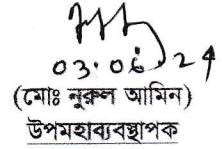 03.06.24
(মোঃ নুরুল আমিন)
উপমহাব্যবস্থাপক